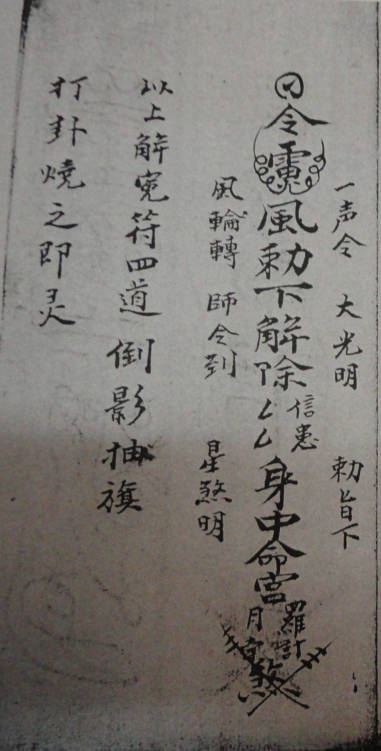 一声令 大光明 勅旨下
日令靈風勅下解除厶厶信患身中命宮羅計月孛煞
風輪轉 師令到 星煞明
以上解冤符四道倒影抽旗
打卦燒之即灵